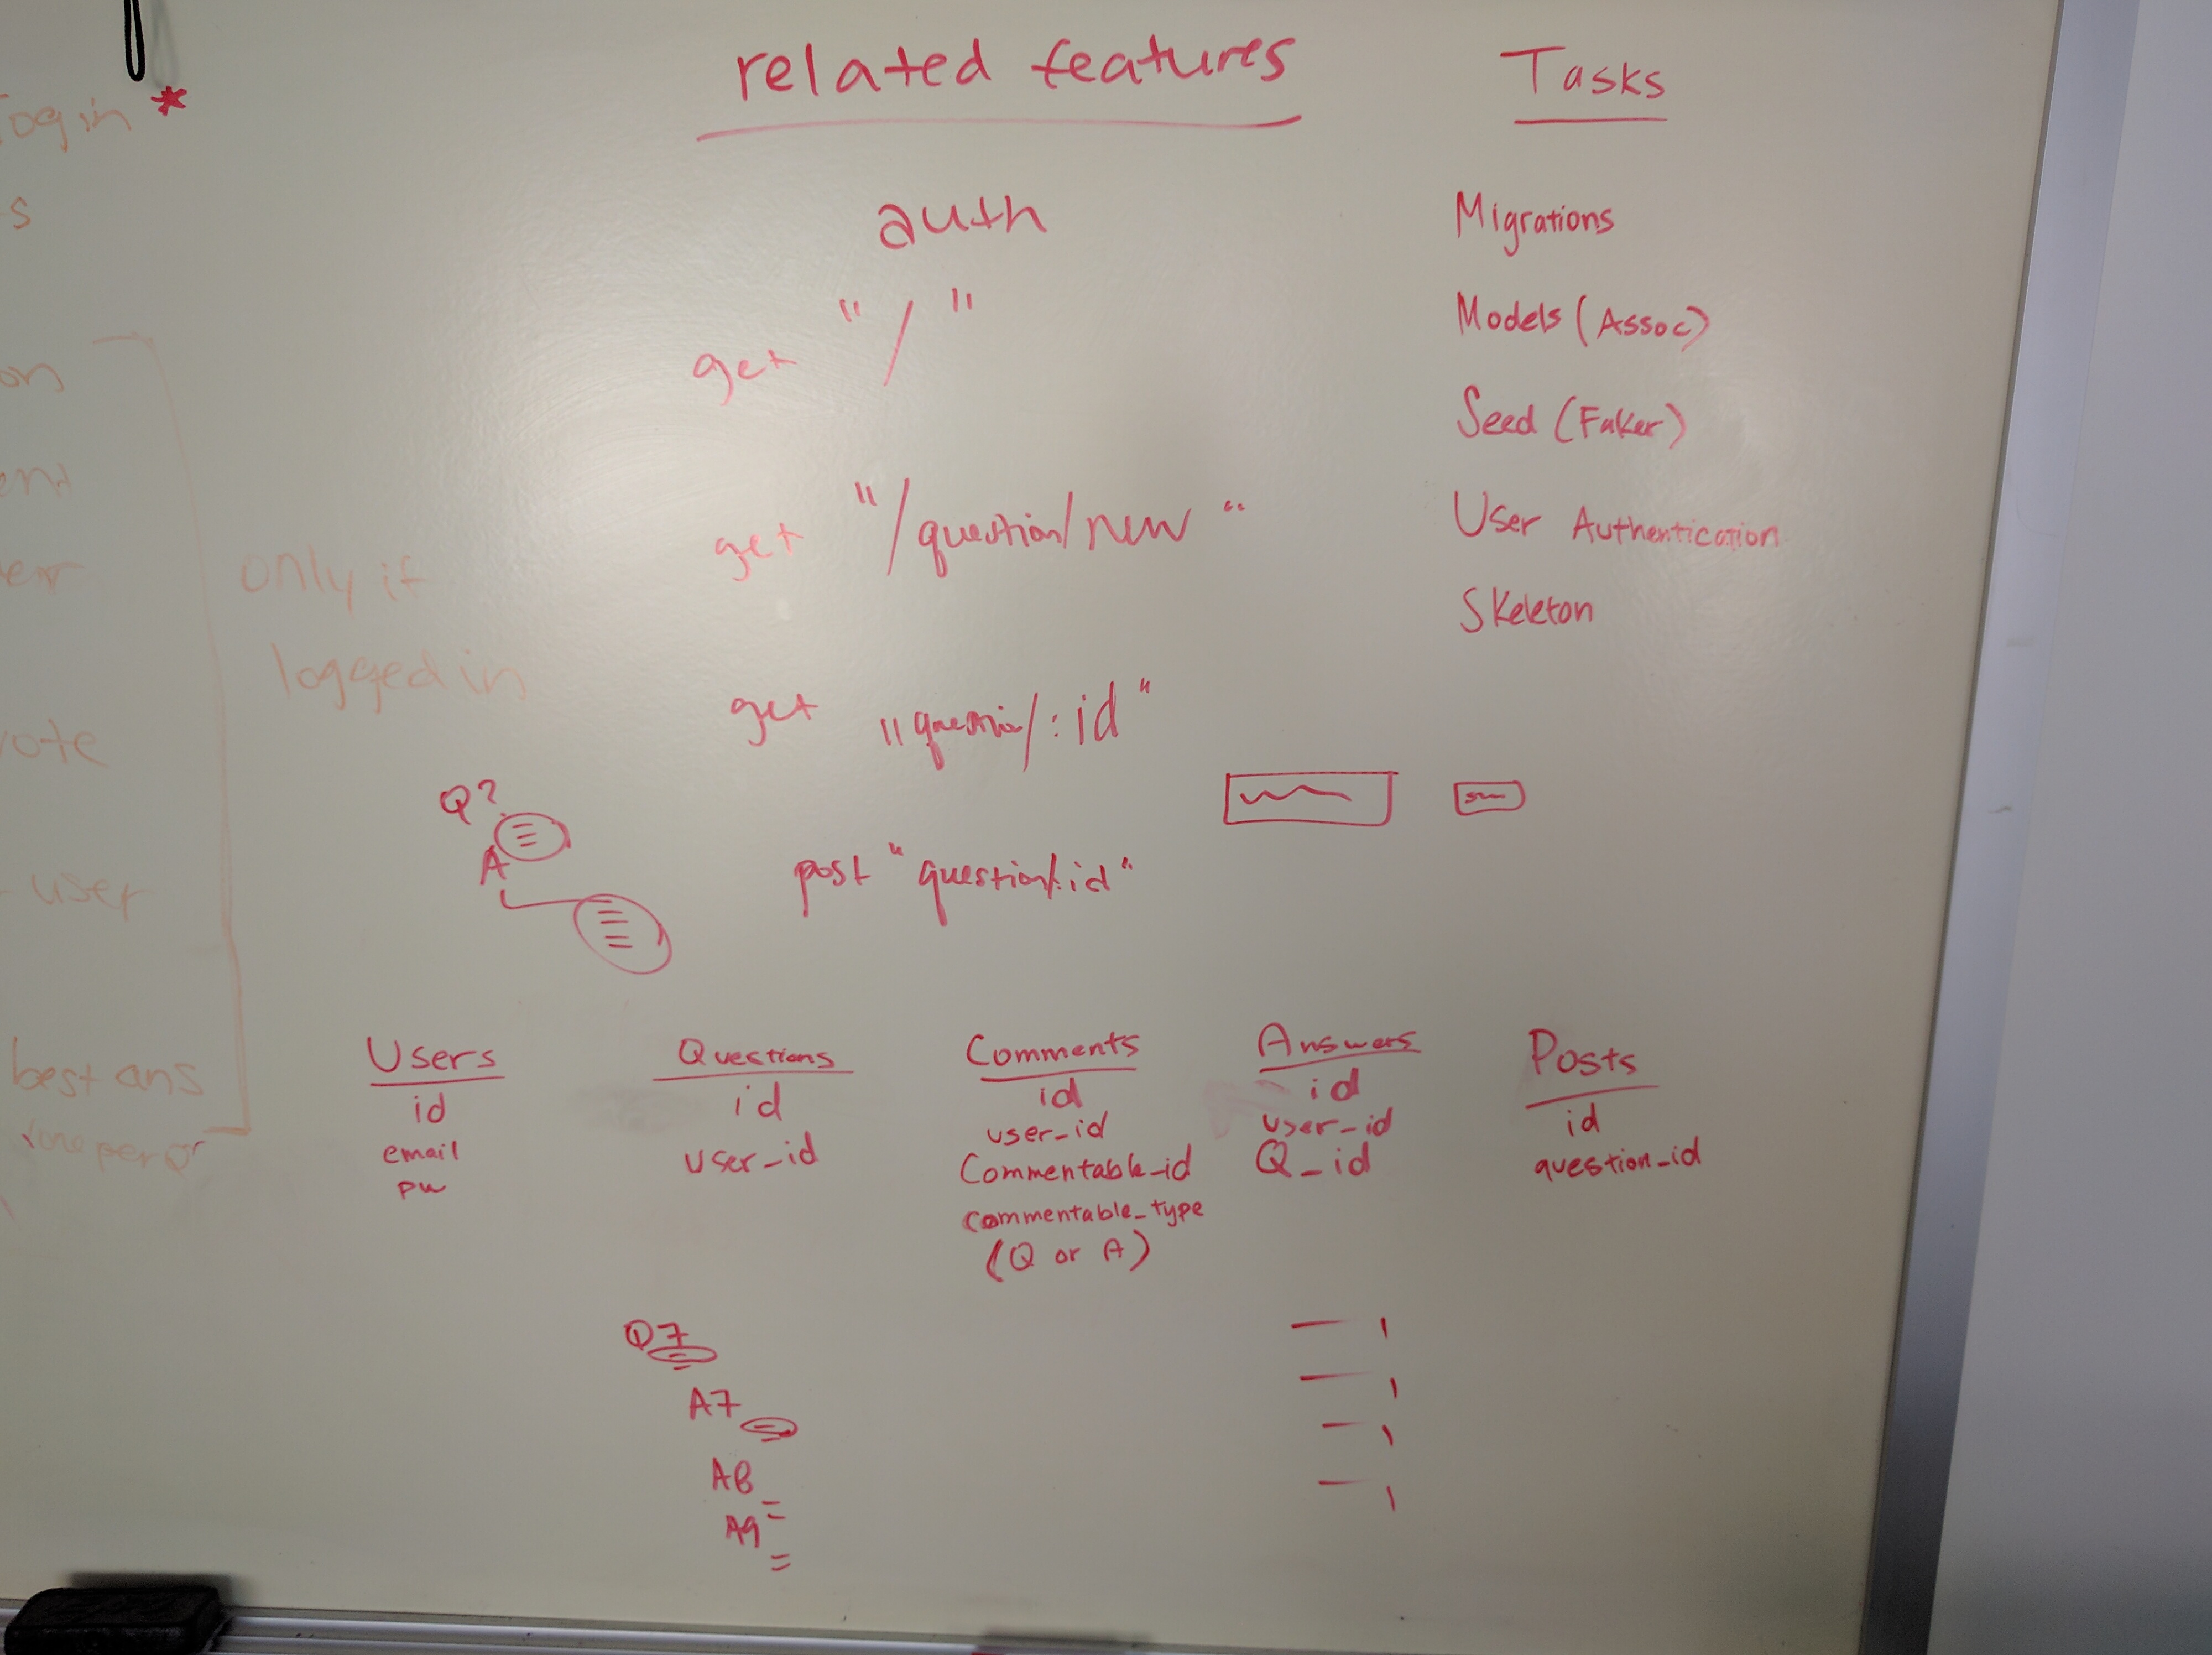 login *
s
on
ent
er
only if
logged in
vote
user
best ans
related features
auth
get "/"
get "/question/new"
get "question/:id"
post "question/:id"
Tasks
Migrations
Models (Assoc)
Seed (Faker)
User Authentication
Skeleton
Q?
A
Users
id
email
pw
Questions
id
user_id
Comments
id
user_id
Commentable_id
commentable_type
(Q or A)
Answers
id
user_id
Q_id
Posts
id
question_id
Q7
A7
A8
A9